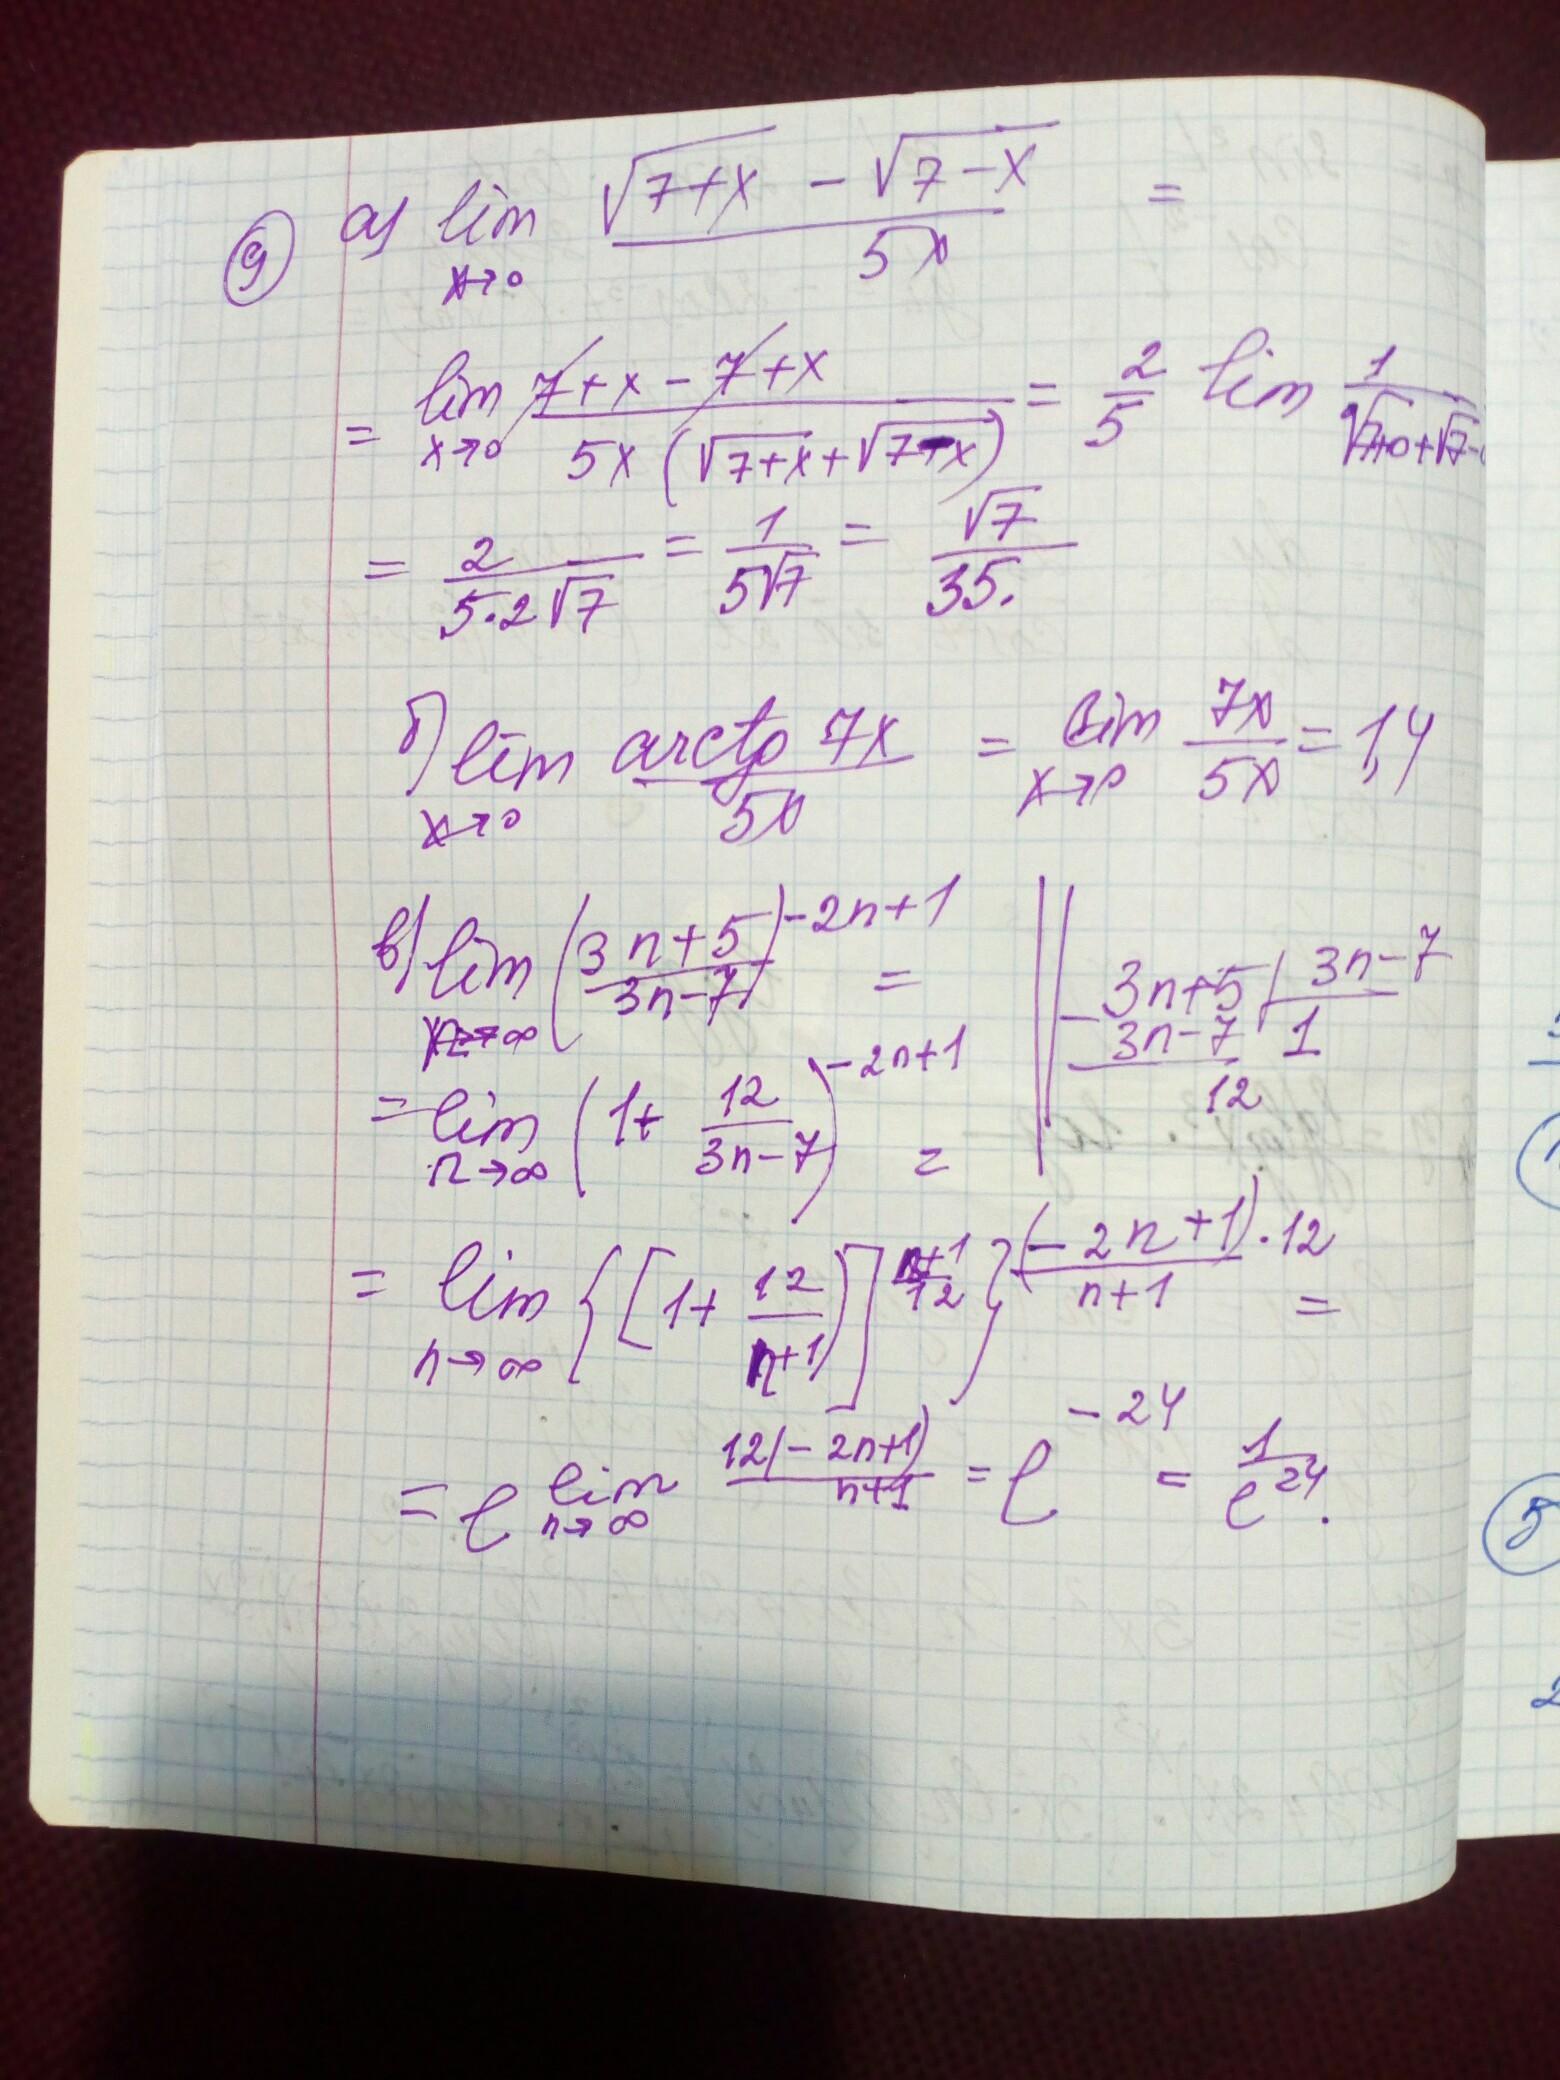 9 а) lim x→0 (√(7+x) - √(7-x))/(5x) =
= lim x→0 (7+x-7+x)/(5x(√(7+x)+√(7-x))) = 2/5 lim 1/(√(7+0)+√(7-
= 2/(5·2√7) = 1/(5√7) = √7/35.
б) lim x→0 (arctg 7x)/(5x) = lim x→0 7x/5x = 1,4
в) lim n→∞ ((3n+5)/(3n-7))^(-2n+1) = || 3n+5 | 3n-7
- 3n-7 | 1
12
= lim n→∞ (1+ 12/(3n-7))^(-2n+1) =
= lim n→∞ {[1+ 12/(n+1))]^((n+1)/12)}^((-2n+1)·12/(n+1)) =
= e^(lim n→∞ 12(-2n+1)/(n+1)) = e^(-24) = 1/e^24.
5
2